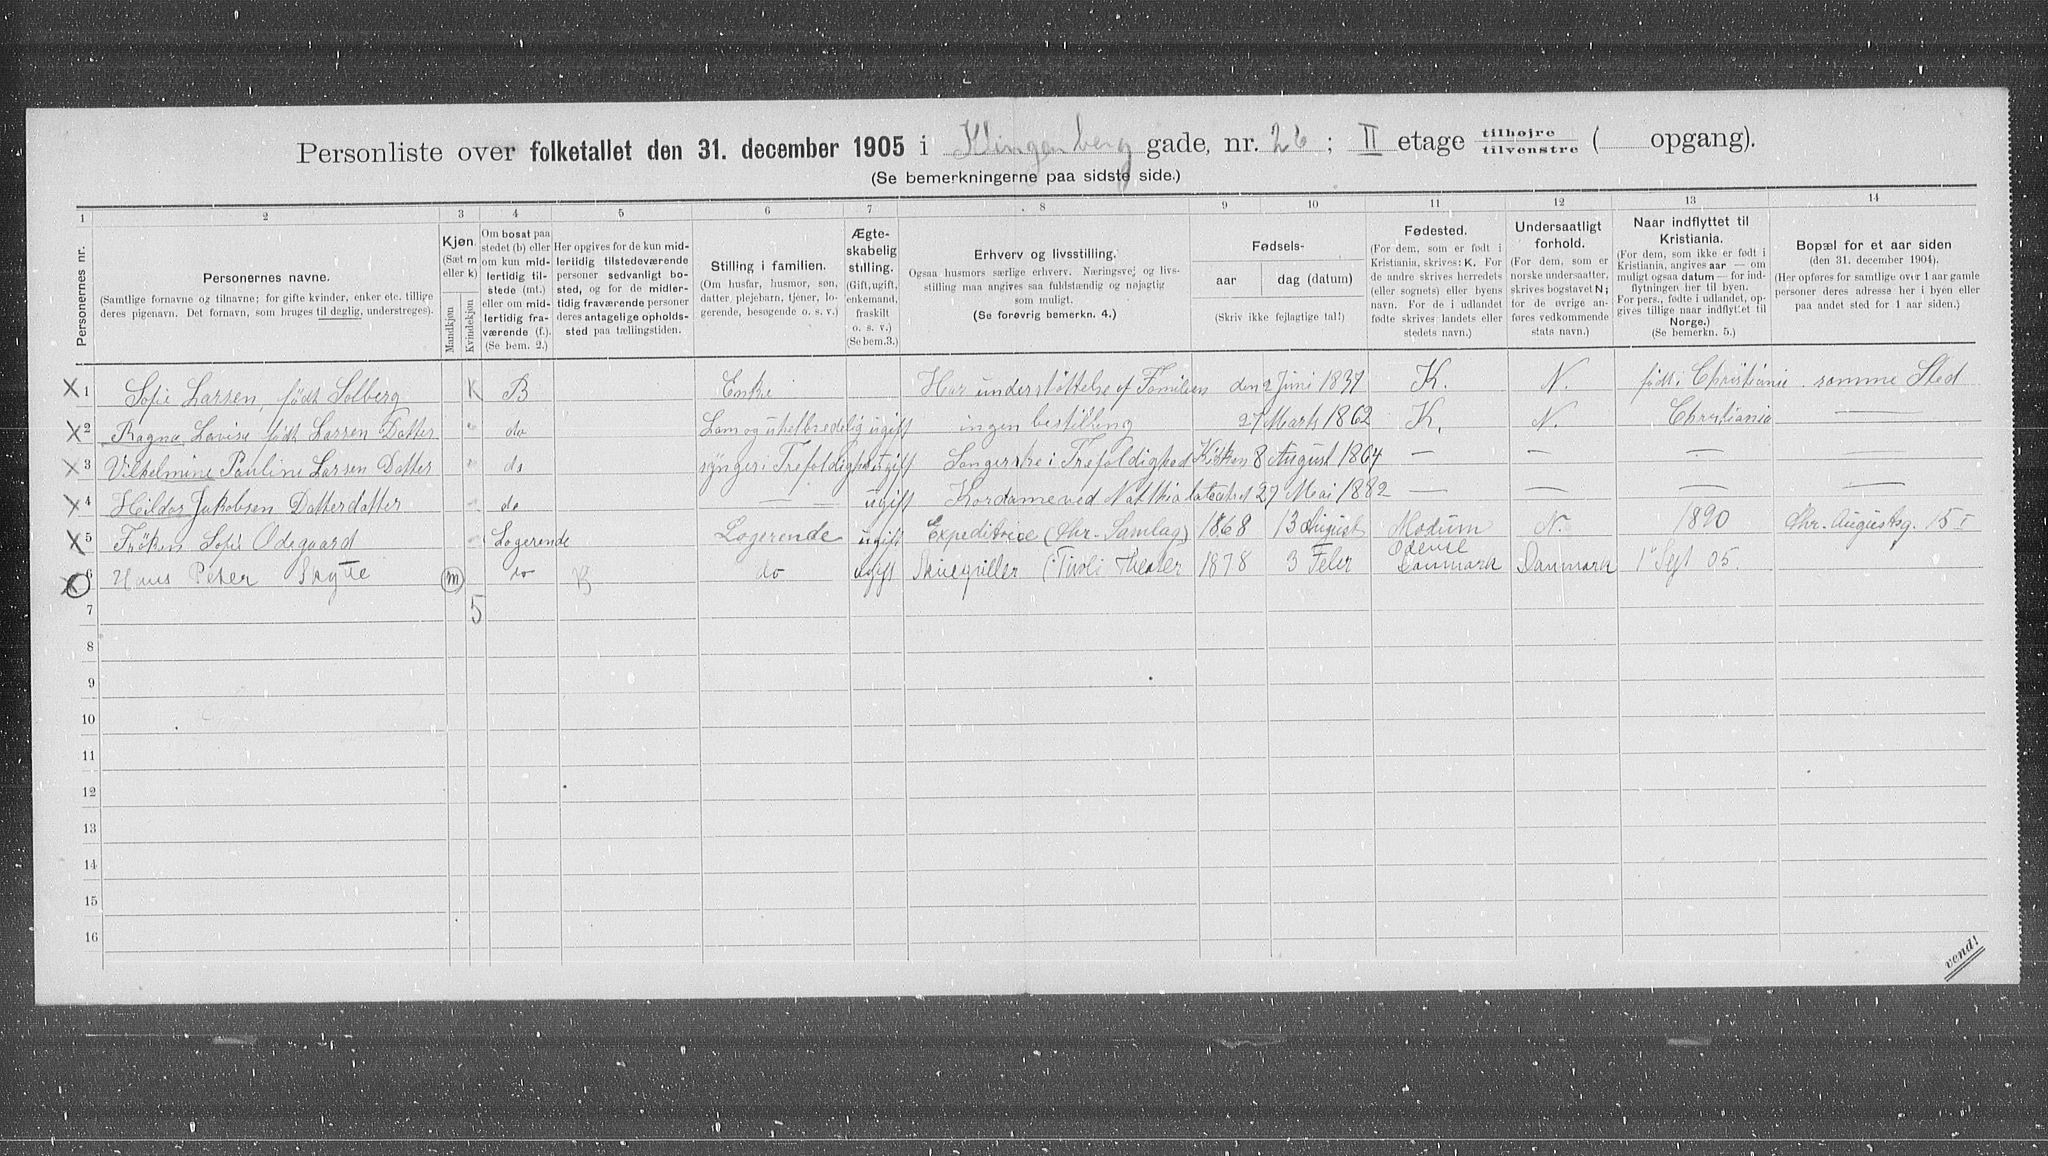 Personliste over folketallet den 31. december 1905 i Klingenberg gade, nr. 26 ; II etage tilhøjre tilvenstre ( opgang).
(Se bemerkningerne paa sidste side.)
1 2 3 4 5 6 7 8 9 10 11 12 13 14
Personernes nr.
Personernes navne.
(Samtlige fornavne og tilnavne; for gifte kvinder, enker etc. tillige
deres pigenavn. Det fornavn, som bruges til deglig, understreges).
Kjøn.
(Sæt m
eller k)
Mandkjøn
Kvindekjøn
Om bosat paa
stedet (b) eller
om kun mid-
lertidig til-
stede (mt.)
eller om mid-
lertidig fra-
værende (f.).
(Se bem. 2.)
Her opgives for de kun mid-
lertidig tilstedeværende
personer sedvanligt bo-
sted, og for de midler-
tidig fraværende personer
deres antagelige opholds-
sted paa tællingstiden.
Stilling i familien.
(Om husfar, husmor, søn,
datter, plejebarn, tjener, lo-
gerende, besøgende o. s. v.)
Ægte-
skabelig
stilling.
(Gift, ugift,
enkemand,
fraskilt
o. s. v.)
(Se bem.3.)
Erhverv og livsstilling.
Ogsaa husmors særlige erhverv. Næringsvej og livs-
stilling maa angives saa fuldstændig og nøjagtig
som muligt.
(Se forøvrig bemerkn. 4.)
Fødsels-
aar dag (datum)
(Skriv ikke fejlagtige tal!)
Fødested.
(For dem, som er født i
Kristiania, skrives: K. For
de andre skrives herredets
(eller sognets) eller byens
navn. For de i udlandet
fødte skrives landets eller
stedets navn.)
Undersaatligt
forhold.
(For dem, som er
norske undersaatter,
skrives bogstavet N;
for de øvrige an-
føres vedkommende
stats navn.)
Naar indflyttet til
Kristiania.
(For dem, som ikke er født i
Kristiania, angives aar — om
muligt ogsaa datum — for ind-
flytningen her til byen.
For pers., fødte i udlandet, op-
gives tillige naar indflyttet til
Norge.)
(Se bemerkn. 5.)
Bopæl for et aar siden
(den 31. december 1904).
(Her opføres for samtlige over 1 aar gamle
personer deres adresse her i byen eller
paa andet sted for 1 aar siden.)
X 1 Sofie Larsen, født Solberg K B Enke Har understøttelse af Familien den 2 Juni 1837 K. N. født i Christiania samme Sted
X 2 Ragna Lovise født Larsen Datter " do Lam og uhelbredelig ugift ingen bestilling 27 Marts 1862 K. N. Christiania —
X 3 Vilhelmine Pauline Larsen Datter " do synger i Trefoldighed ugift Sangerske i Trefoldighed Kirken 8 August 1864 — — — —
X 4 Hilda Jakobsen Datterdatter " do — — ugift Kordame ved Nationalteatret 27 Mai 1882 — — — —
X 5 Frøken Sofie Odegaard " Logerende Logerende ugift Expeditrice (Chr. Samlag) 1868 13 August Modum N. 1890 Chr. Augustsg. 15 I
X 6 Hans Peter Skytte m do B do ugift Skuespiller (Tivoli Theater 1878 3 Febr Odense Danmark Danmark 1" Sept 05.
7 5
8
9
10
11
12
13
14
15
16
vend!